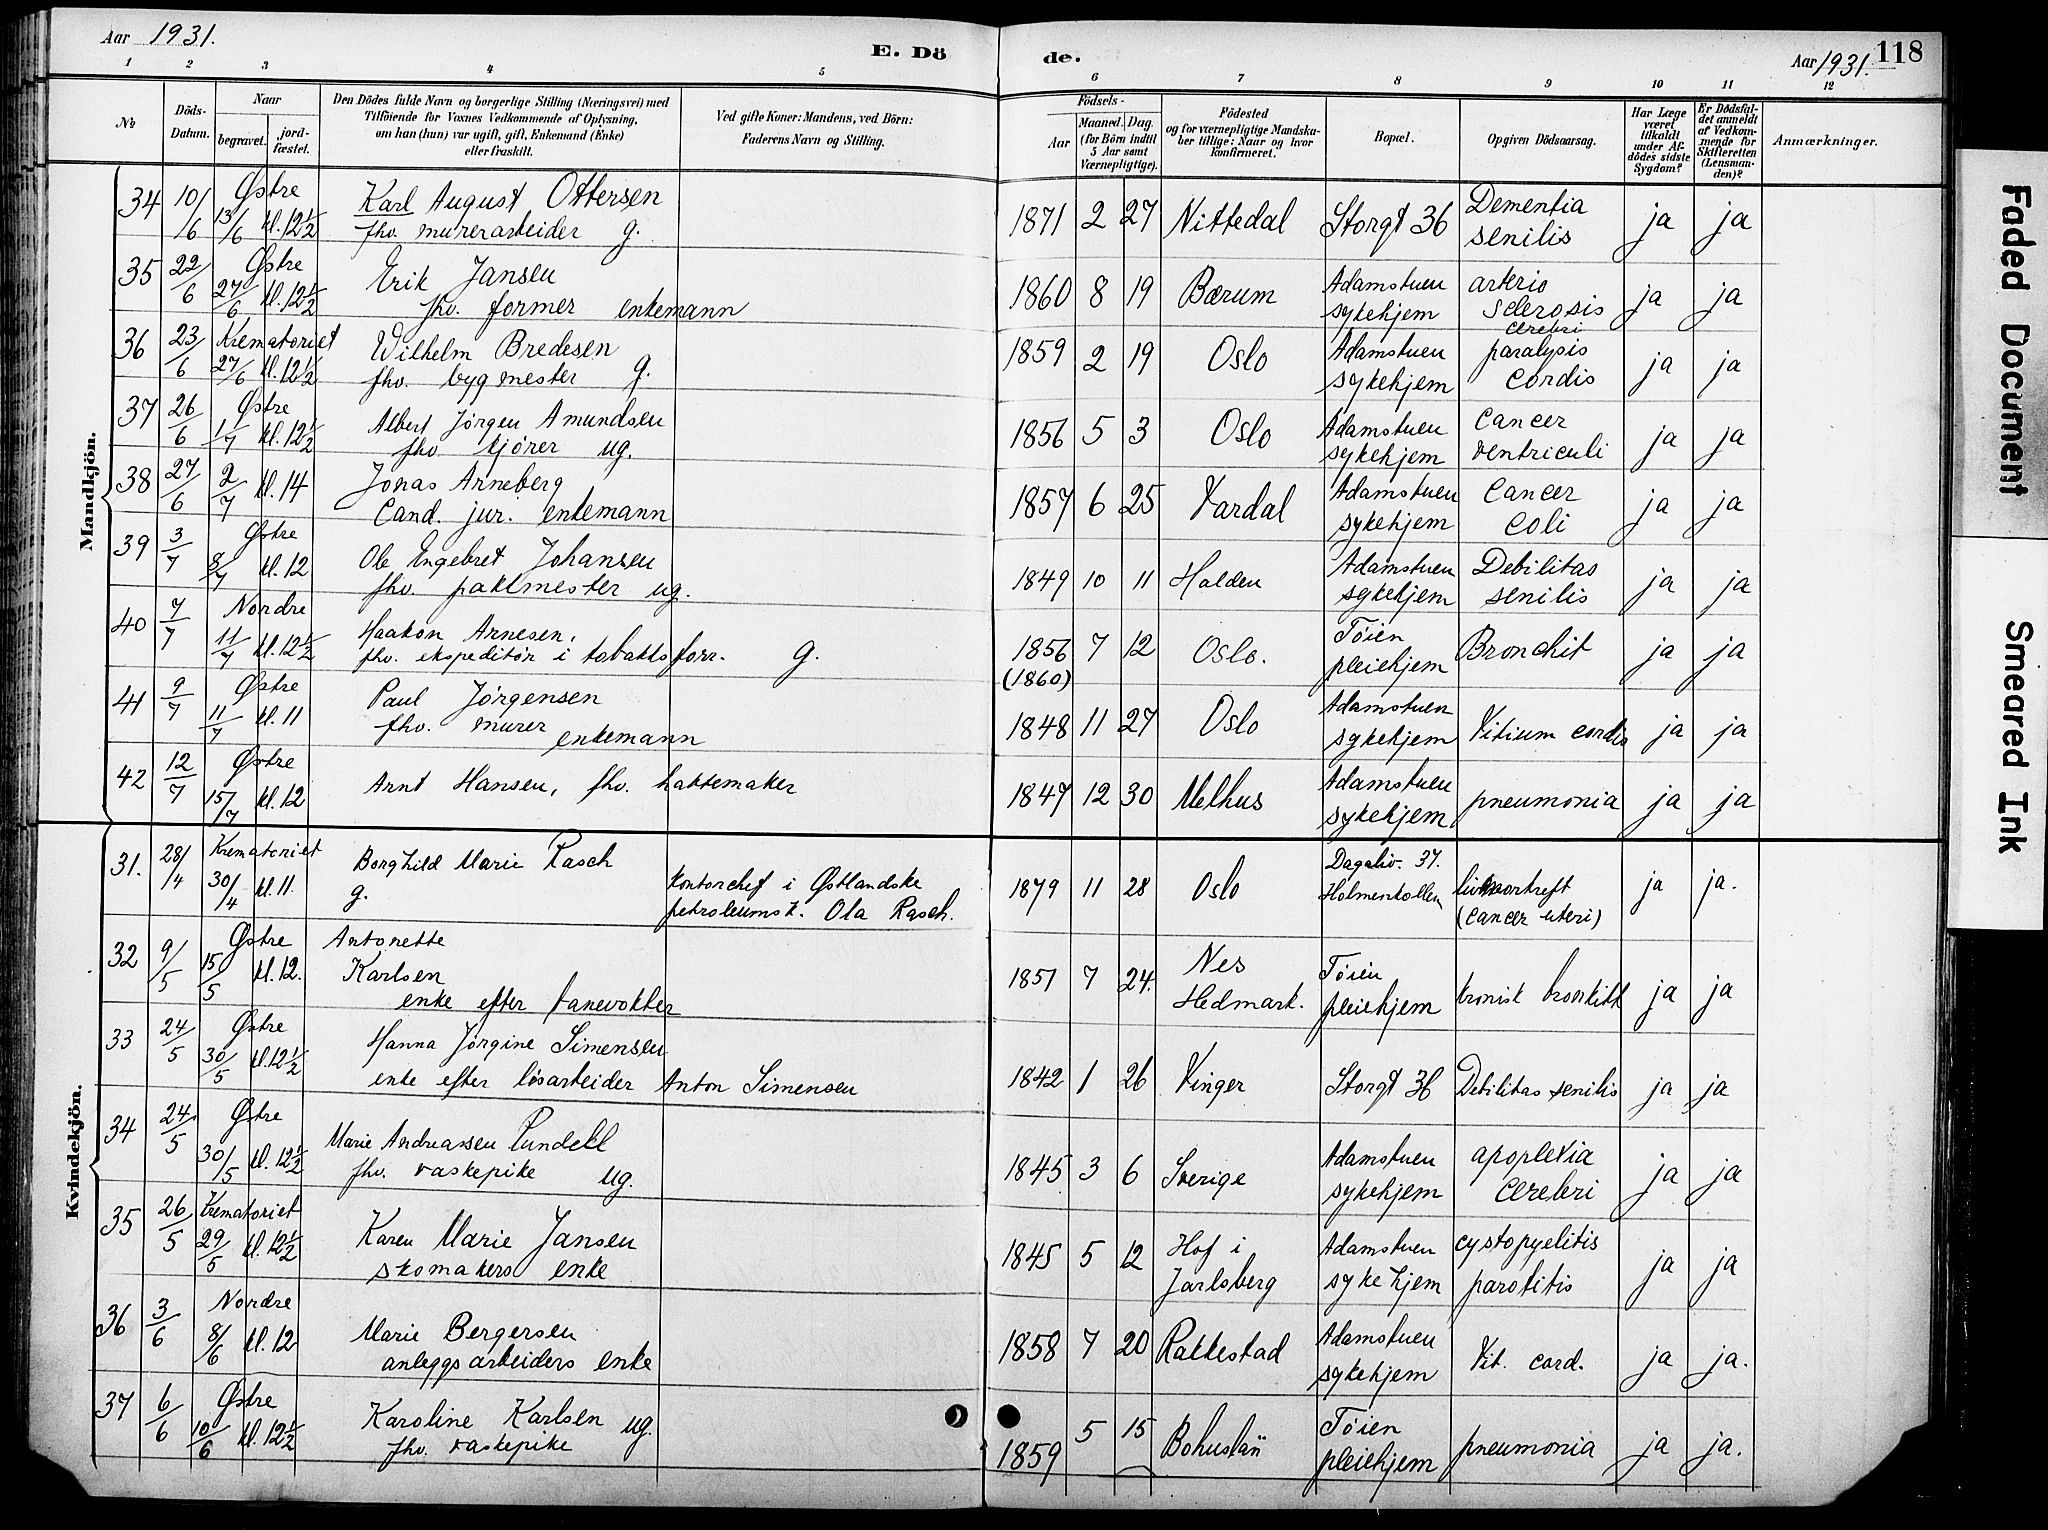 Aar 1931.
E. Dö
de.
Aar 1931.
118
1 2 3 4 5 6 7 8 9 10 11 12
No
Döds-Datum.
Naar
begravet.
jord-fæstet.
Den Dödes fulde Navn og borgerlige Stilling (Næringsvei) med
Tilföiende for Voxnes Vedkommende af Oplysning,
om han (hun) var ugift, gift, Enkemand (Enke)
eller fraskilt.
Ved gifte Koner: Mandens, ved Börn:
Faderens Navn og Stilling.
Födsels-
Aar
Maaned. Dag.
(for Börn indtil
5 Aar samt
Værnepligtige).
Födested
og for værnepligtige Mandska-
ber tillige: Naar og hvor
konfirmeret.
Bopæl.
Opgiven Dödsaarsag.
Har Læge
været
tilkaldt
under Af-
dödes sidste
Sygdom?
Er Dödsfal-
det anmeldt
af Vedkom-
mende for
Skifteretten
(Lensman-
den)?
Anmærkninger.
Mandkjön.
34 10/6 Østre 13/6 kl. 12 1/2 Karl August Ottersen
fhv. murerarbeider g. 1871 2 27 Nittedal Storgt 36 Dementia senilis ja ja
35 22/6 Østre 27/6 kl. 12 1/2 Erik Jansen
fhv. former enkemann 1860 8 19 Bærum Adamstuen sykehjem arterio sclerosis cerebri ja ja
36 23/6 Krematoriet 27/6 kl. 12 1/2 Wilhelm Bredesen
fhv. bygmester g. 1859 2 19 Oslo Adamstuen sykehjem paralysis cordis ja ja
37 26/6 Østre 1/7 kl. 12 1/2 Albert Jørgen Amundsen
fhv kjører ug. 1856 5 3 Oslo Adamstuen sykehjem Cancer ventriculi ja ja
38 27/6 2/7 kl. 14 Jonas Arneberg
Cand. jur. enkemann 1857 6 25 Vardal Adamstuen sykehjem Cancer coli ja ja
39 3/7 Østre 8/7 kl. 12 Ole Engebret Johansen
fhv. pakkmester ug. 1849 10 11 Halden Adamstuen sykehjem Debilitas senilis ja ja
40 7/7 Nordre 11/7 kl. 12 1/2 Haakon Arnesen,
fhv. ekspeditör i tobakksforr. g. 1856 (1860) 7 12 Oslo. Tøien pleiehjem Bronchit ja ja
41 9/7 Østre 11/7 kl. 11 Paul Jørgensen
fhv. murer enkemann 1848 11 27 Oslo Adamstuen sykehjem Vitium cordis ja ja
42 12/7 Østre 15/7 kl. 12 Arnt Hansen, fhv. hattemaker 1847 12 30 Melhus Adamstuen sykehjem pneumonia ja ja
Kvindekjön.
31. 28/4 Krematoriet 30/4 kl. 11. Borghild Marie Rasch
g. Kontorchef i Østlandske
petroleumsk. Ola Rasch. 1879 11 28 Oslo Dagaliv. 37. Holmenkollen (cancer uteri) ja ja.
32 9/5 Østre 15/5 kl. 12. Antonette
Karlsen
enke efter banevokter 1851 7 24. Nes Hedmark. Tøien pleiehjem kronisk bronkitt ja ja
33 24/5 Østre 30/5 kl. 12 1/2 Hanna Jørgine Simensen
enke efter løsarbeider Anton Simensen 1842 1 26 Vinger Storgt 36 Debilitas senilis ja ja
34 24/5 Østre 30/5 kl. 12 1/2 Marie Andreasen Rundell
fhv. vaskepike ug. 1845 3 6 Sverige Adamstuen sykehjem apoplexia cerebri ja ja
35 26/5 Krematoriet 29/5 kl. 12 1/2 Karen Marie Jansen
skomakers enke 1845 5 12 Hof i Jarlsberg Adamstuen sykehjem cystopyelitis parotitis ja ja
36 3/6 Nordre 8/6 kl. 12 Marie Bergersen
anleggsarbeiders enke 1858 7 20 Rakkestad Adamstuen sykehjem Vit. cord. ja ja.
37 6/6 Østre 10/6 kl. 12 1/2 Karoline Karlsen ug.
fhv. vaskepike 1859 5 15 Bohuslän Tøien pleiehjem pneumonia ja ja.
Faded Document
Smeared Ink